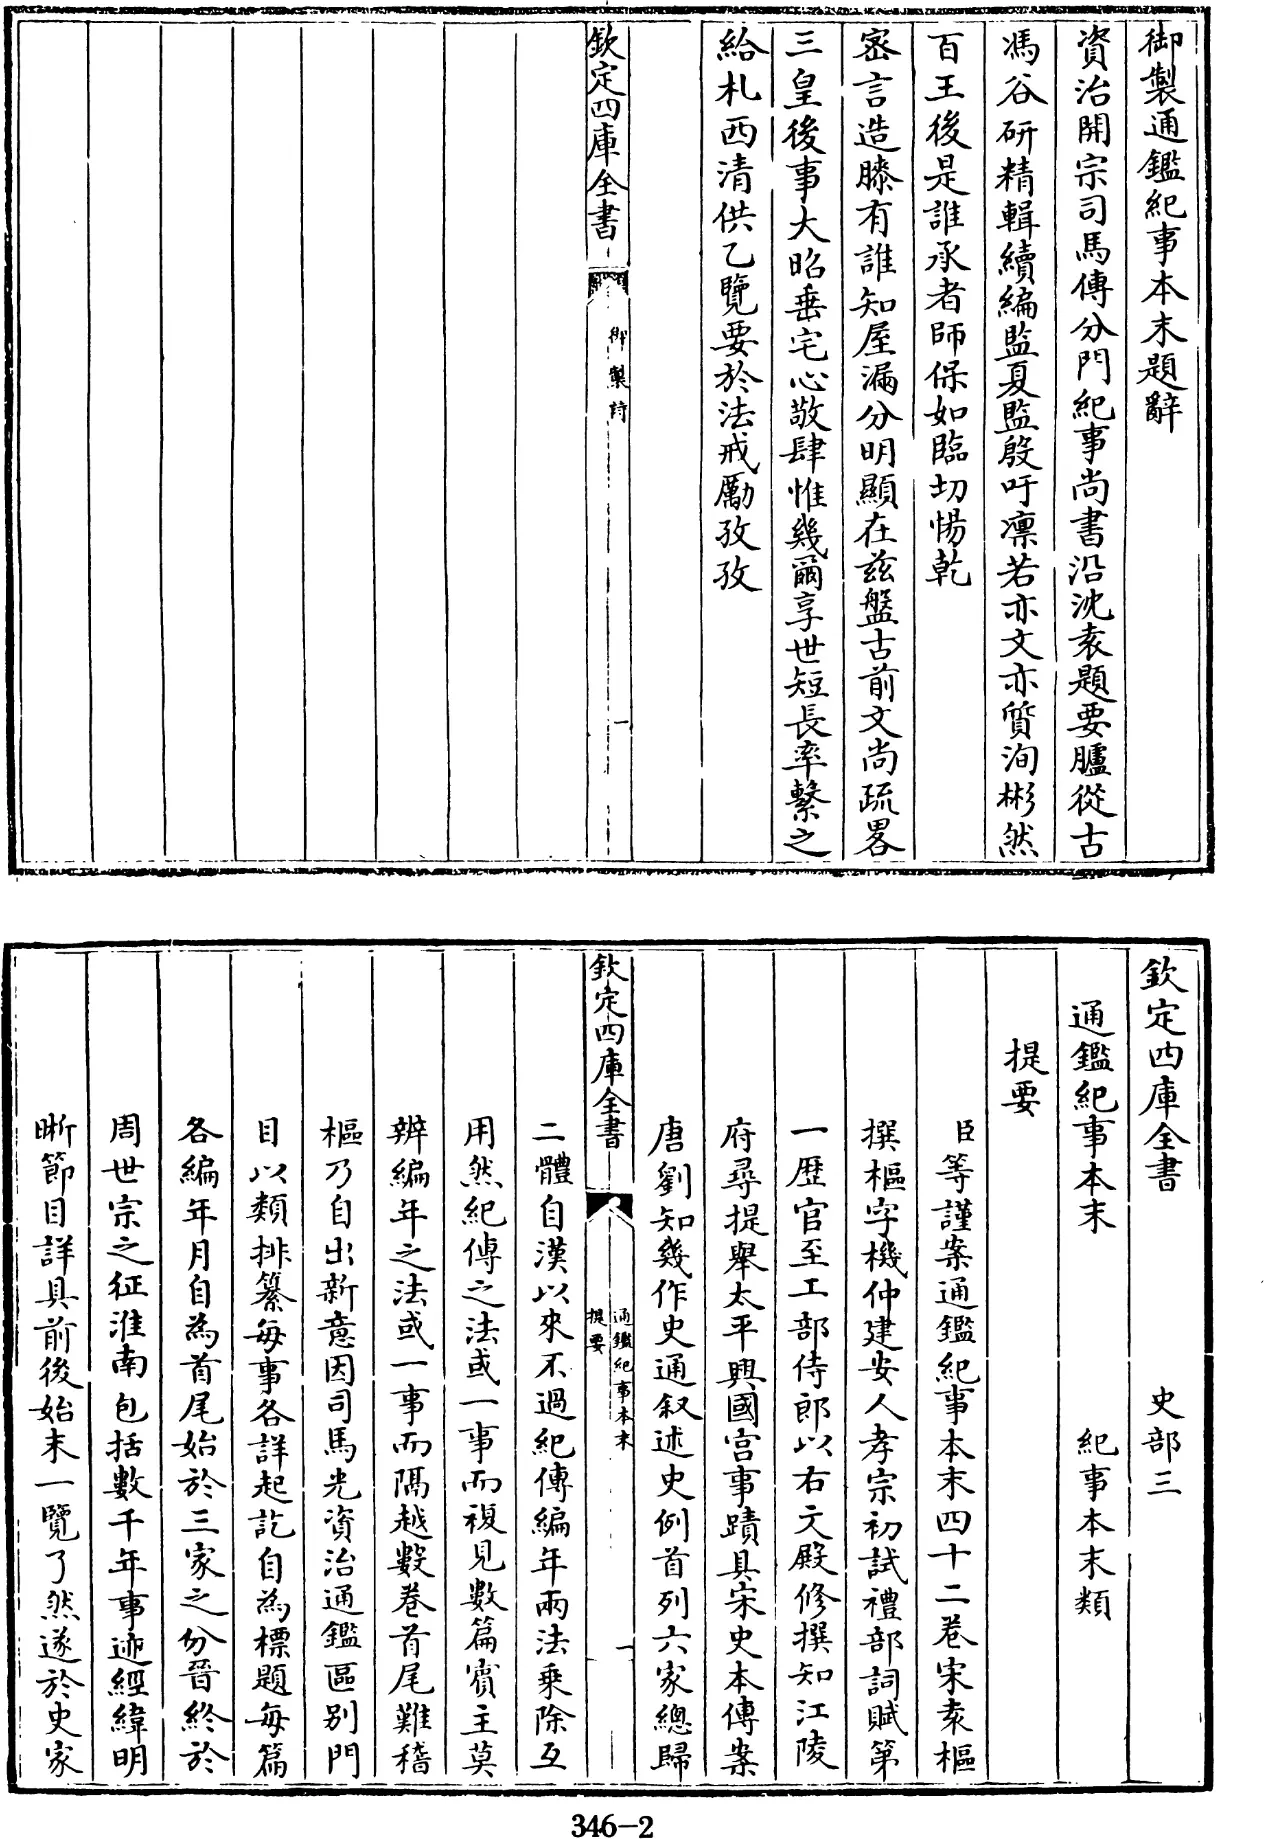 御製通鑑紀事本末題辭
資治開宗司馬傳分門紀事尚書沿沈袁題要臚從古
馮谷研精輯續編監夏監殷吁凜若亦文亦質洵彬然
百王後是誰承者師保如臨切惕乾
宻言造膝有誰知屋漏分明顯在兹盤古前文尚疏畧
三皇後事大昭垂宅心敬肆惟幾爾享世短長率繫之
給札西清供乙覽要於法戒勵孜孜
欽定四庫全書
御製詩
一
欽定四庫全書 史部三
通鑑紀事本末 紀事本末類
提要
臣等謹案通鑑紀事本末四十二卷宋袁樞
撰樞字機仲建安人孝宗初試禮部詞賦第
一歷官至工部侍郎以右文殿修撰知江陵
府尋提舉太平興國宮事蹟具宋史本傳案
唐劉知幾作史通叙述史例首列六家總歸
欽定四庫全書
通鑑紀事本末
提要
一
二體自漢以來不過紀傳編年兩法乗除互
用然紀傳之法或一事而複見數篇賓主莫
辨編年之法或一事而隔越數卷首尾難稽
樞乃自出新意因司馬光資治通鑑區别門
目以類排纂每事各詳起訖自為標題每篇
各編年月自為首尾始於三家之分晉終於
周世宗之征淮南包括數千年事迹經緯明
晰節目詳具前後始末一覽了然遂於史家
346-2